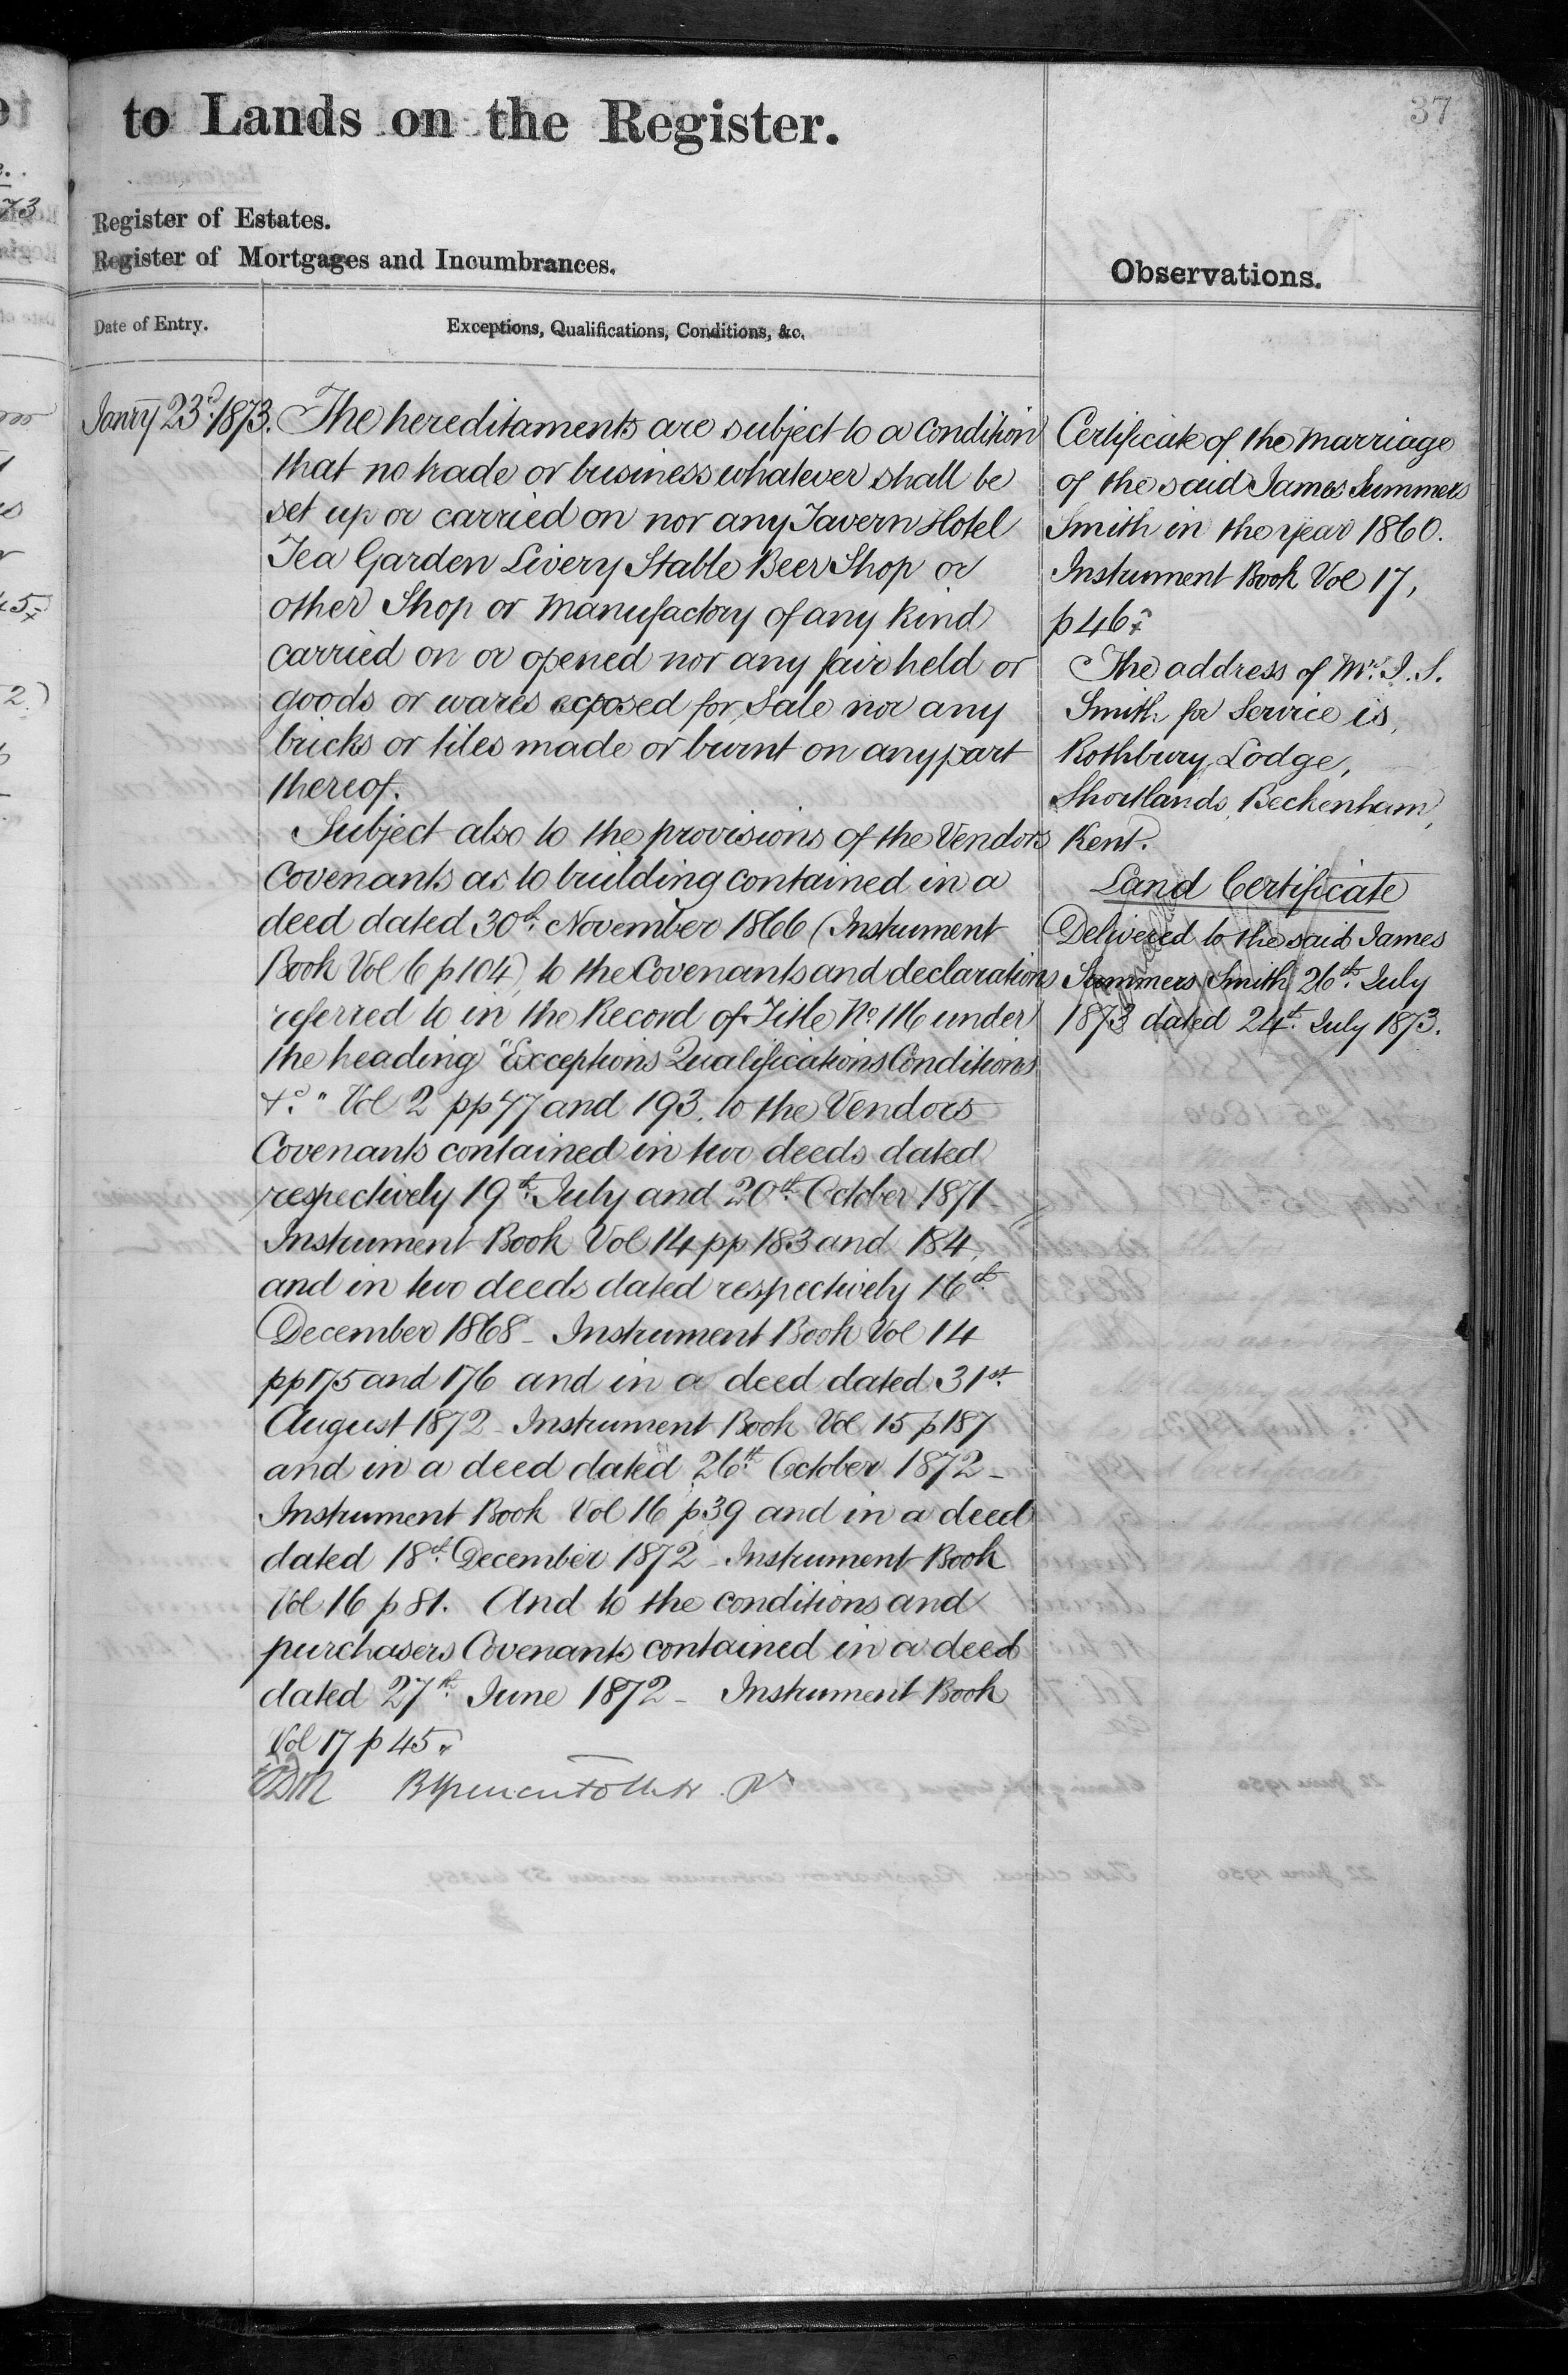 37
to Lands on the Register.
Register of Estates.
Register of Mortgages and Incumbrances.
Observations.
Date of Entry.
Exceptions, Qualifications, Conditions, &c.
Janry 23rd 1873.
The hereditaments are subject to a condition
that no trade or business whatever shall be
set up or carried on nor any Tavern Hotel
Tea Garden Livery Stable Beer Shop or
other Shop or manufactory of any kind
carried on or opened nor any fair held or
goods or wares exposed for Sale nor any
bricks or tiles made or burnt on any part
thereof.
Subject also to the provisions of the Vendors
Covenants as to building contained in a
deed dated 30th November 1866 (Instrument
Book Vol 6 p 104), to the Covenants and declarations
referred to in the Record of Title No 116 under
the heading "Exceptions Qualifications Conditions
&c." Vol 2 pp 77 and 193. to the Vendors
Covenants contained in two deeds dated
respectively 19th July and 20th October 1871
Instrument Book Vol 14 pp 183 and 184,
and in two deeds dated respectively 16th
December 1868 - Instrument Book Vol 14
pp 175 and 176 and in a deed dated 31st
August 1872 - Instrument Book Vol 15 p 187
and in a deed dated 26th October 1872 -
Instrument Book Vol 16 p 39 and in a deed
dated 18th December 1872 - Instrument Book
Vol 16 p 81. And to the conditions and
purchasers Covenants contained in a deed
dated 27th June 1872 - Instrument Book
Vol 17 p 45.
Certificate of the marriage
of the said James Summers
Smith in the year 1860.
Instrument Book Vol 17,
p 46.
The address of Mr J. S.
Smith for Service is,
Rothbury Lodge,
Shortlands, Beckenham,
Kent.
Land Certificate
Delivered to the said James
Summers Smith 26th July
1873 dated 24th July 1873.